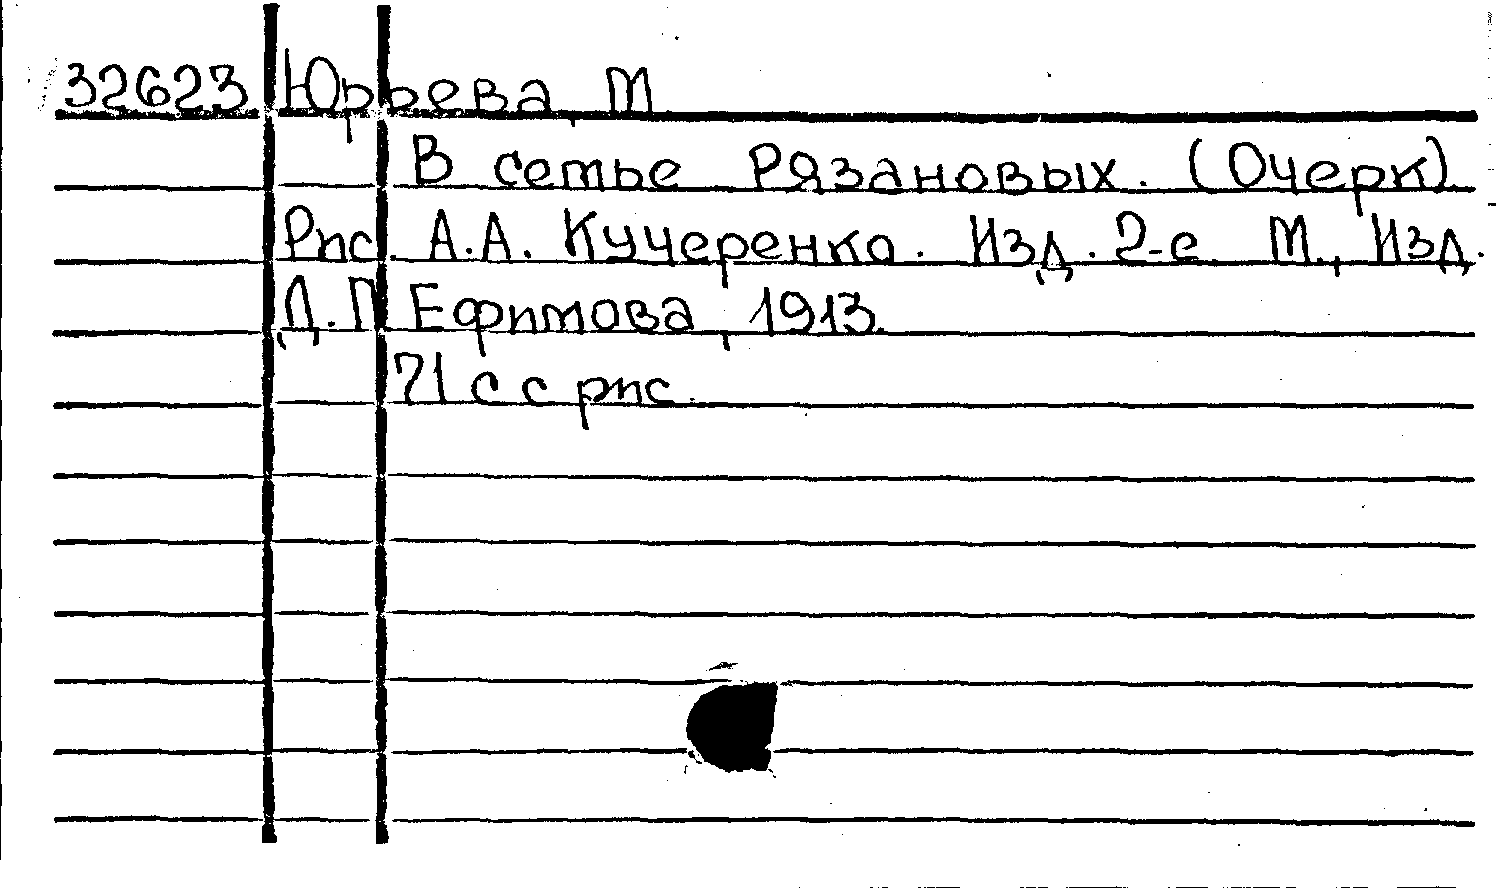 32623 Юрьева, М
В семье Рязановых. (Очерк).
Рис. А.А. Кучеренко. Изд. 2-е М., Изд.
Д.П Ефимова, 1913.
71 с с рис.